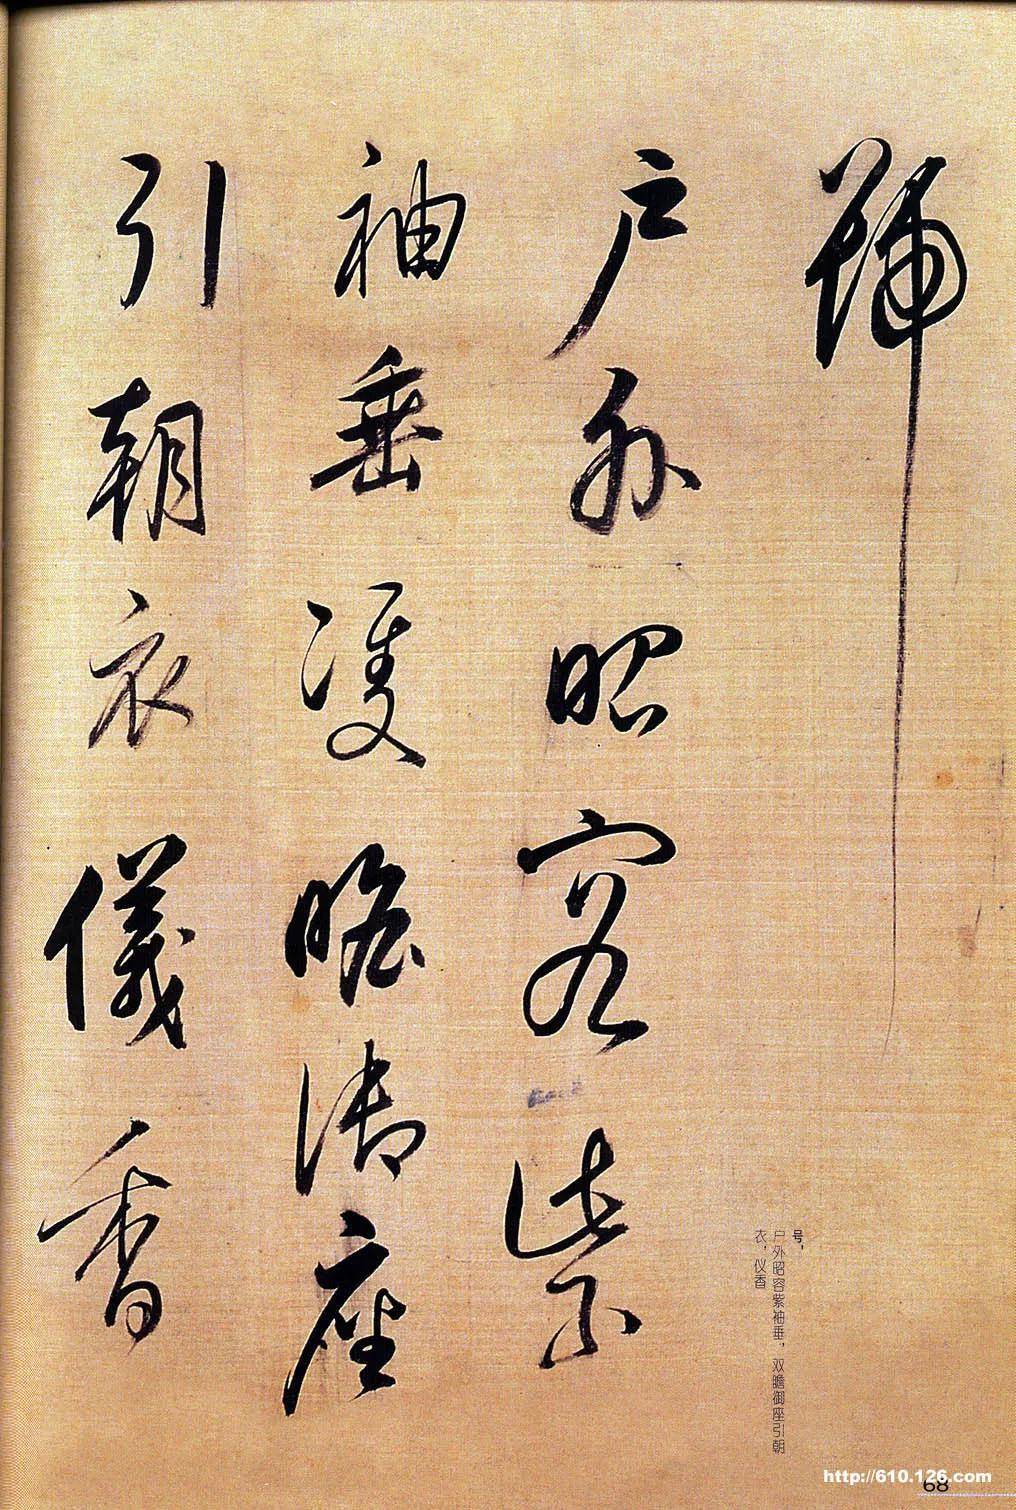 號
户外昭容紫
袖垂雙瞻御座
引朝衣儀香
号，
户外昭容紫袖垂，双瞻御座引朝
衣，仪香
http://610.126.com
68